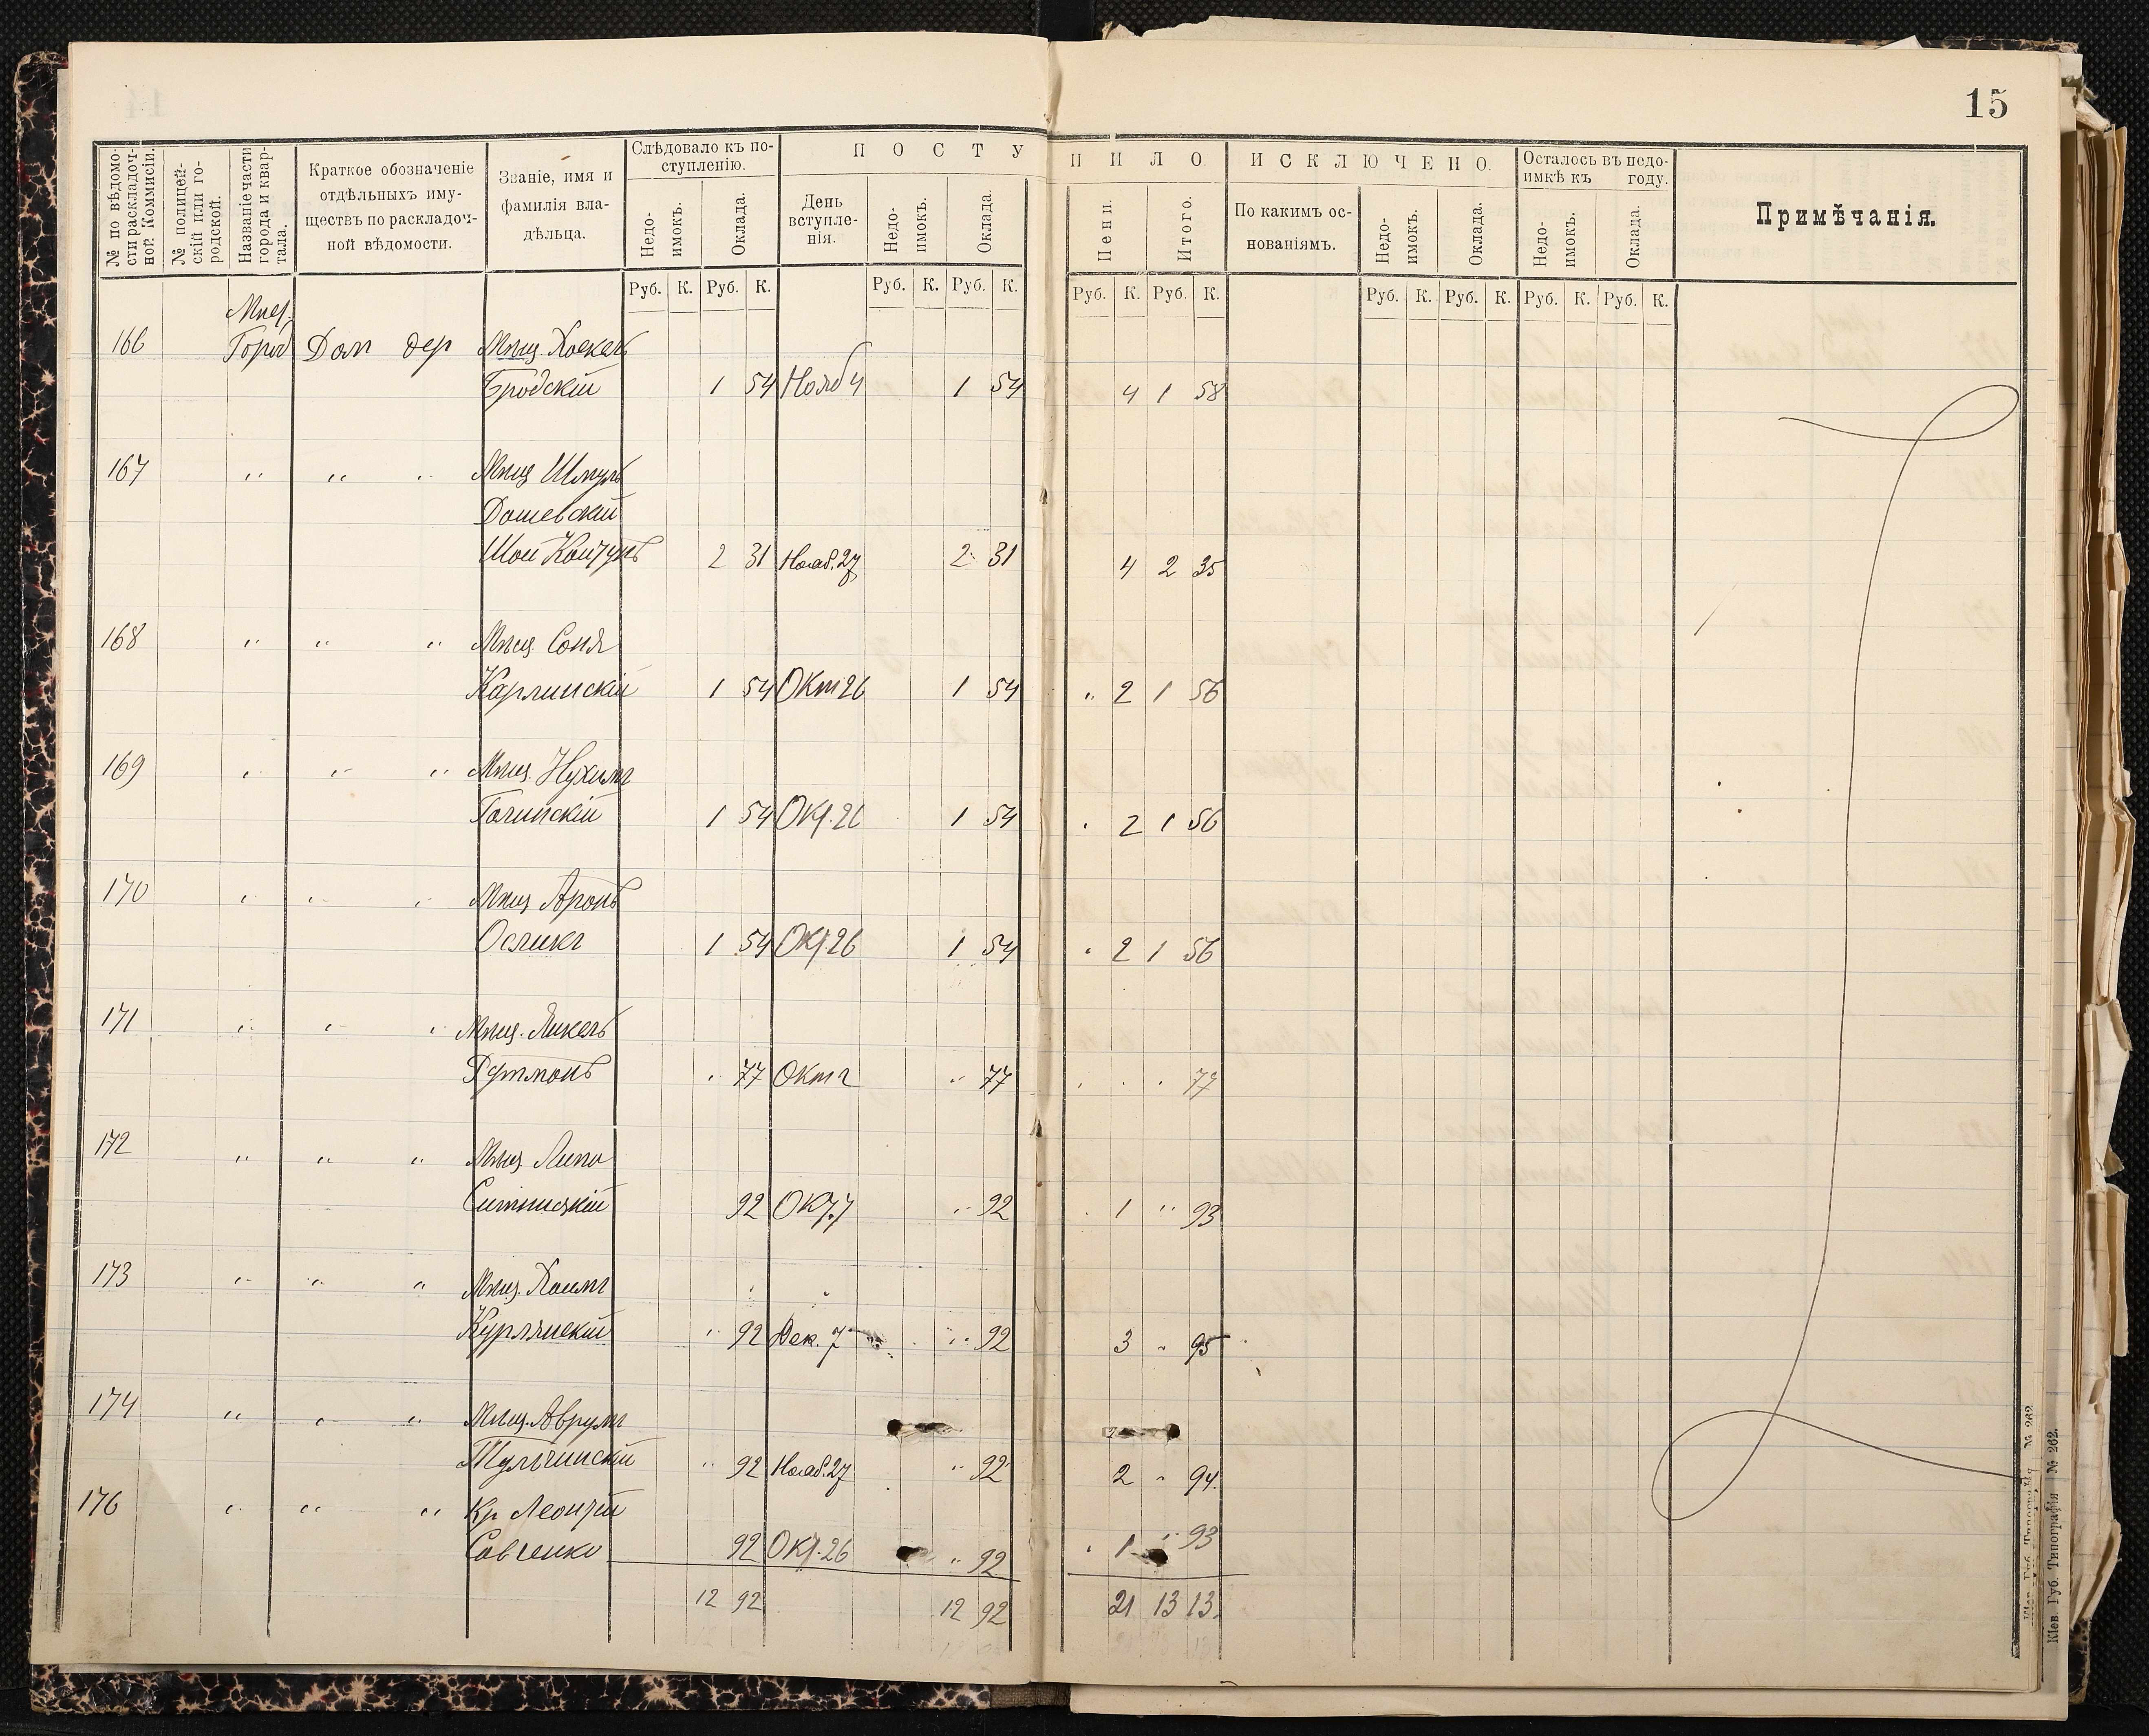 15
№ по вѣдомости раскладочной Коммисіи.
№ полицейскій или городской.
Названіе части города и квартала.
Краткое обозначеніе отдѣльныхъ имуществъ по раскладочной вѣдомости.
Званіе, имя и фамилія владѣльца.
Слѣдовало къ поступленію.
Недоимокъ. Оклада.
ПОСТУПИЛО.
День вступленія. Недоимокъ. Оклада. Пени. Итого.
ИСКЛЮЧЕНО.
По какимъ основаніямъ. Недоимокъ. Оклада.
Осталось въ недоимкѣ къ году.
Недоимокъ. Оклада.
Примѣчанія.
Руб. К. Руб. К. Руб. К. Руб. К. Руб. К. Руб. К. Руб. К. Руб. К. Руб. К. Руб. К.
166 Дом дер Мѣщ.
Бродскій 1 54 Нояб 4 1 54 4 1 58
167 " " " Мѣщ Шмуль
Дашевскій
2 31 Нояб. 27 2 31 4 2 35
168 " " " Мѣщ. Соня
Карлинскій 1 54 Окт 26 1 54 " 2 1 56
169 " " " Мѣщ. Нухимъ
1 54 Окт. 26 1 54 " 2 1 56
170 " " " Мѣщ Аронъ
Осликъ 1 54 Окт. 26 1 54 " 2 1 56
171 " " " Мѣщ. Янкель
" 77 Окт 2 " 77 " " " 77
172 " " " Мѣщ. Липа
Ситницкій 92 Окт. 7 " 92 " 1 " 93
173 " " " Мѣщ. Хаимъ
Курлянскій " 92 Дек. 7 " 92 3 " 95
174 " " " Мѣщ. Аврумъ
Тульчинскій " 92 Нояб. 27 " 92 2 " 94
176 " " " Кр Леонтій
Савченко 92 Окт. 26 " 92 " 1 " 93
12 92 12 92 21 13 13
Кіев. Губ. Типографія № 262.